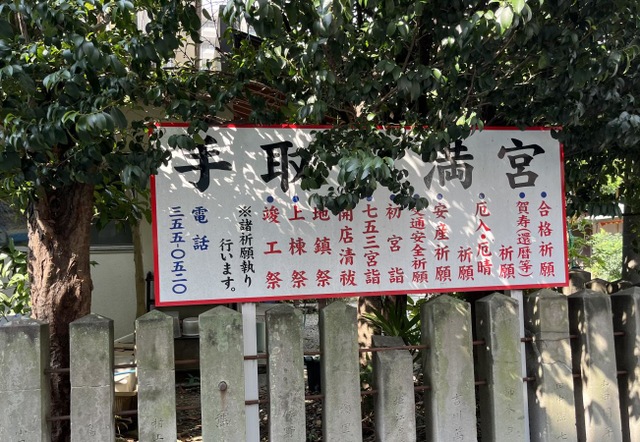 手取 満宮
合格祈願
賀寿(還暦等)
祈願
厄入・厄晴
祈願
安産祈願
交通安全祈願
初宮詣
七五三宮詣
開店清祓
地鎮祭
上棟祭
竣工祭
※諸祈願執り
行います。
電話
三五五〇五二〇